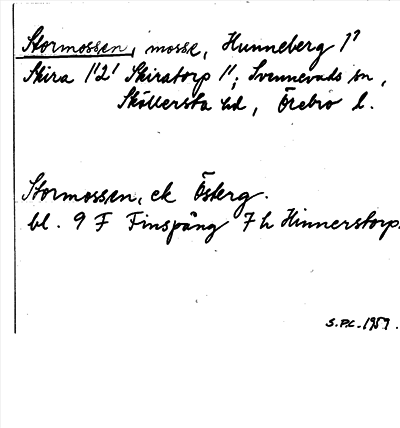 Stormossen, mosse, Hunneberg 1?
Skira 1'2' Skiratorp 1'; Svennevads sn,
Sköllersta hd, Örebro l.
Stormossen, ek Österg.
bl. 9 F Finspång 7 h Hinnerstorp.
S.P.C. 1959.